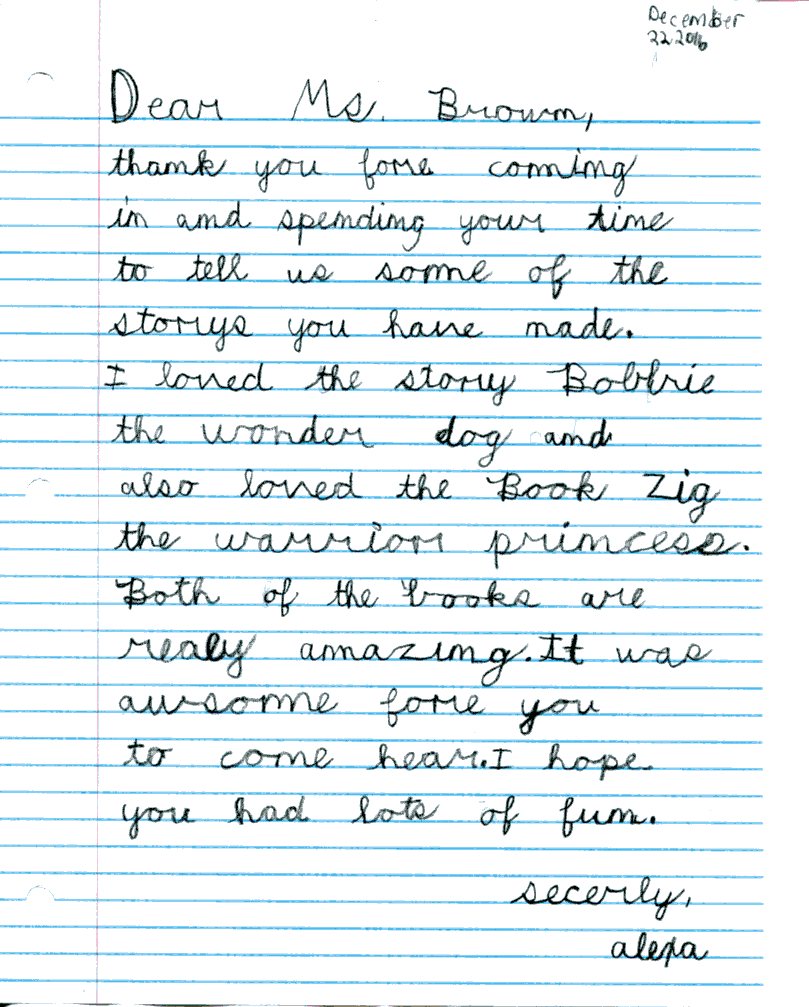 December
22 2016
Dear Ms. Brown,
thank you fore coming
in and spending your time
to tell us some of the
storys you have made.
I loved the story Bobbie
the wonder dog and
also loved the Book Zig
the warrior princess.
Both of the books are
realy amazing. It was
awsome fore you
to come hear. I hope
you had lots of fun.
secerly,
alexa